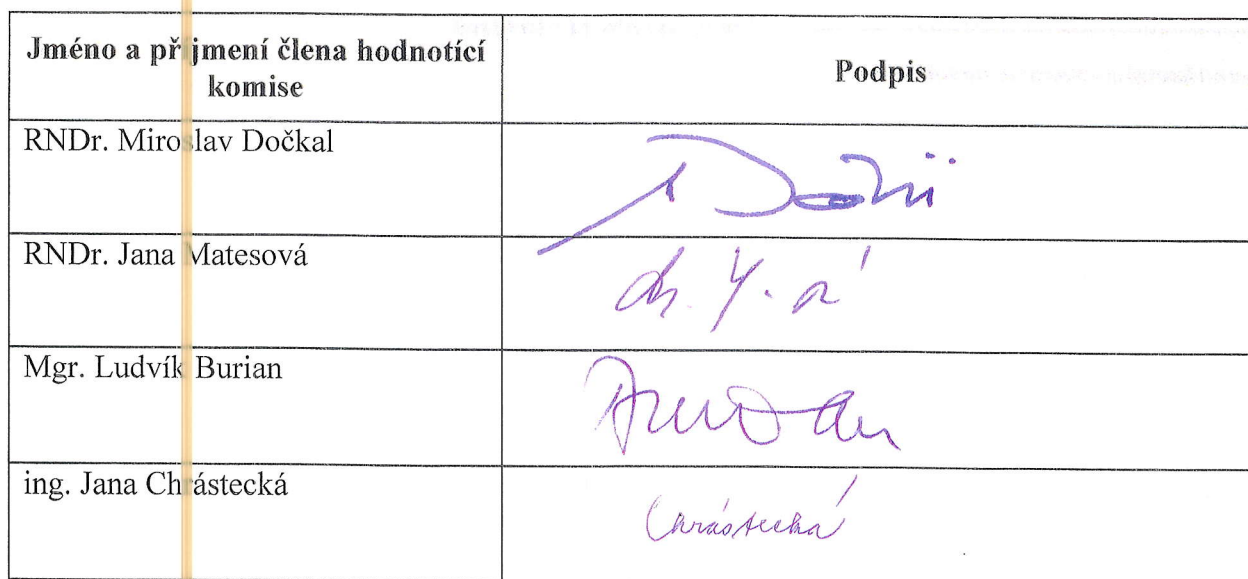 Jméno a příjmení člena hodnotící
komise
Podpis
RNDr. Miroslav Dočkal
RNDr. Jana Matesová
Mgr. Ludvík Burian
ing. Jana Chrástecká
Chrástecká